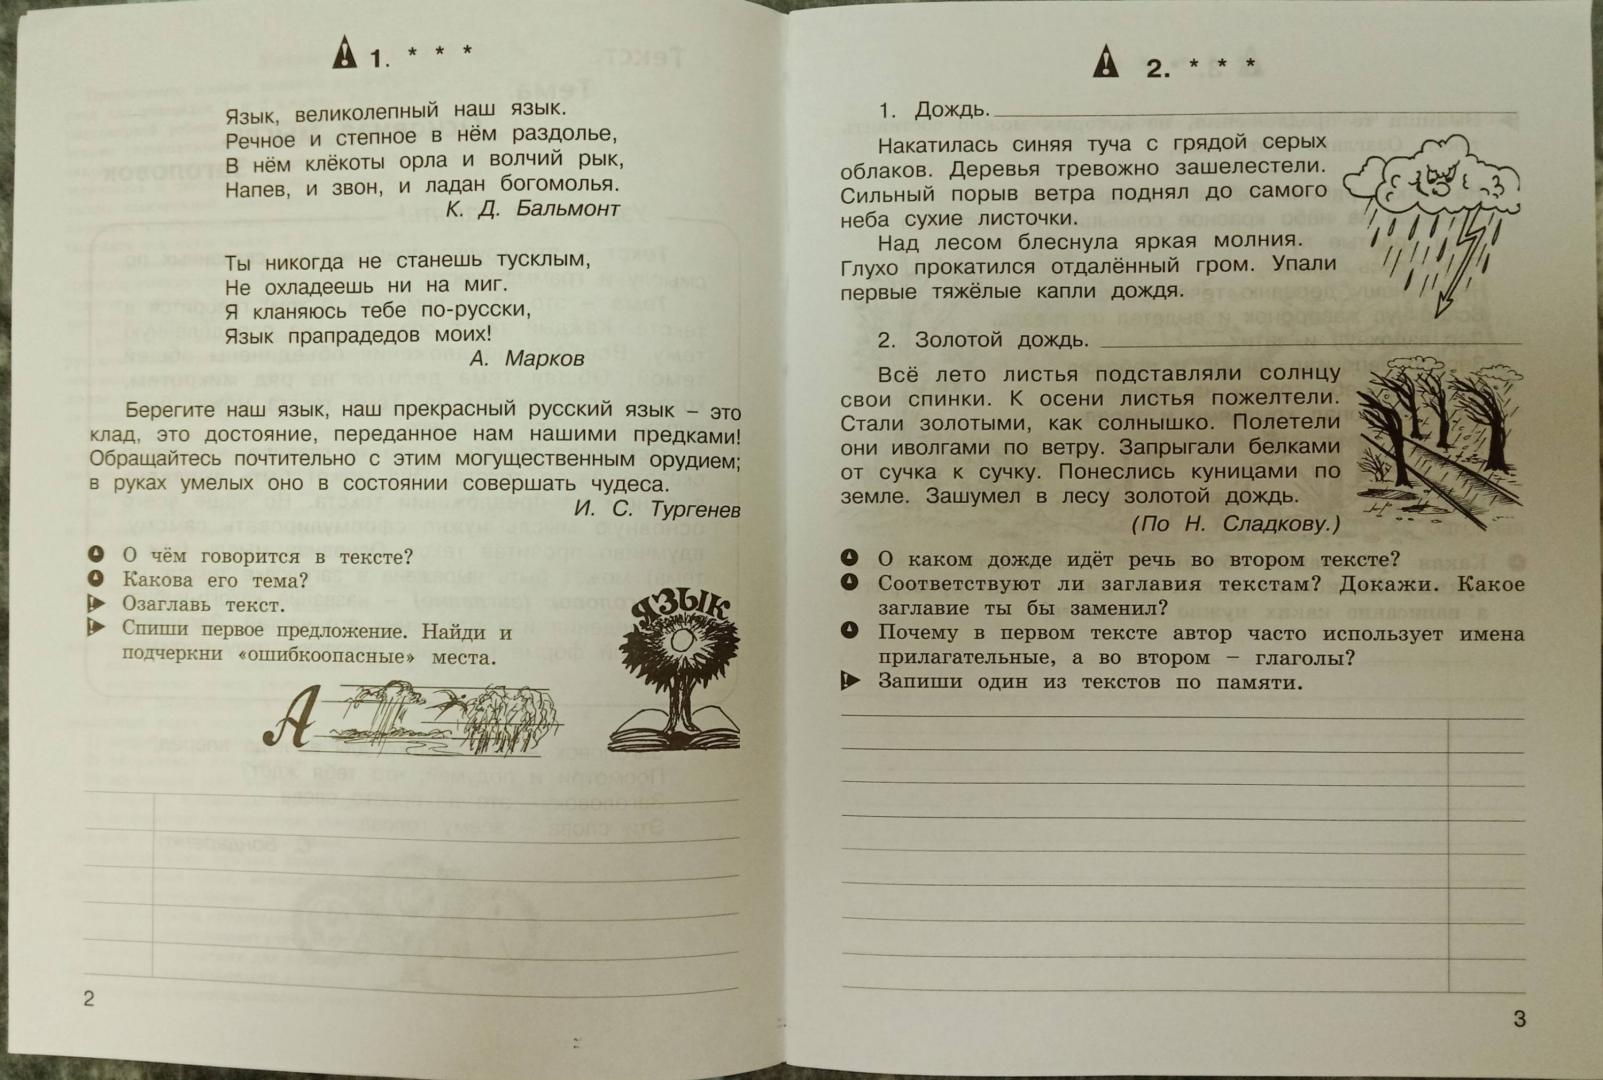 1. * * *
Язык, великолепный наш язык.
Речное и степное в нём раздолье,
В нём клёкоты орла и волчий рык,
Напев, и звон, и ладан богомолья.
К. Д. Бальмонт
Ты никогда не станешь тусклым,
Не охладеешь ни на миг.
Я кланяюсь тебе по-русски,
Язык прапрадедов моих!
А. Марков
Берегите наш язык, наш прекрасный русский язык – это
клад, это достояние, переданное нам нашими предками!
Обращайтесь почтительно с этим могущественным орудием;
в руках умелых оно в состоянии совершать чудеса.
И. С. Тургенев
О чём говорится в тексте?
Какова его тема?
Озаглавь текст.
Спиши первое предложение. Найди и
подчеркни «ошибкоопасные» места.
ЯЗЫК
А
2
2. * * *
1. Дождь.
Накатилась синяя туча с грядой серых
облаков. Деревья тревожно зашелестели.
Сильный порыв ветра поднял до самого
неба сухие листочки.
Над лесом блеснула яркая молния.
Глухо прокатился отдалённый гром. Упали
первые тяжёлые капли дождя.
2. Золотой дождь.
Всё лето листья подставляли солнцу
свои спинки. К осени листья пожелтели.
Стали золотыми, как солнышко. Полетели
они иволгами по ветру. Запрыгали белками
от сучка к сучку. Понеслись куницами по
земле. Зашумел в лесу золотой дождь.
(По Н. Сладкову.)
О каком дожде идёт речь во втором тексте?
Соответствуют ли заглавия текстам? Докажи. Какое
заглавие ты бы заменил?
Почему в первом тексте автор часто использует имена
прилагательные, а во втором – глаголы?
Запиши один из текстов по памяти.
3